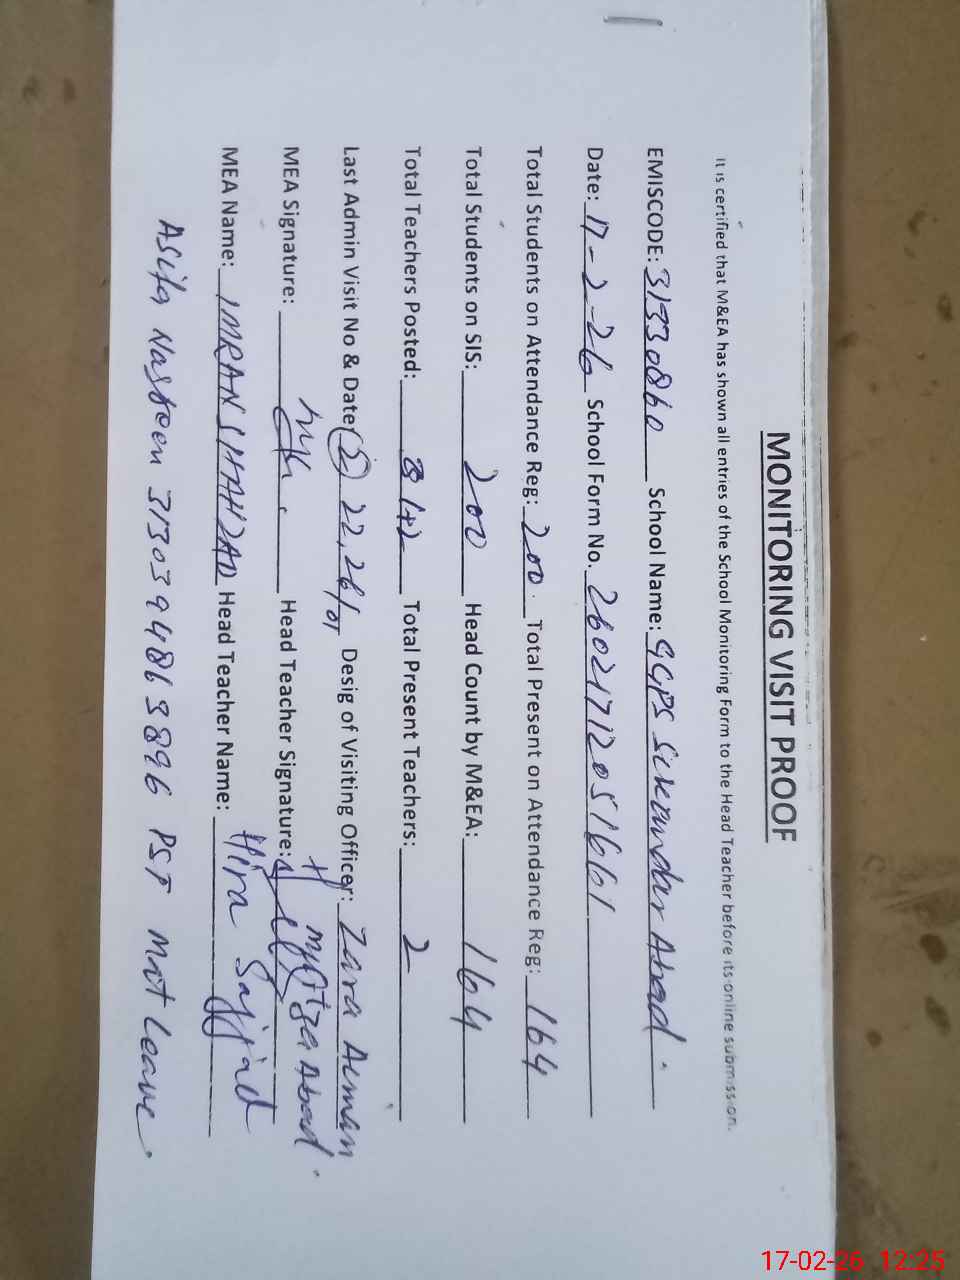 MONITORING VISIT PROOF
It is certified that M&EA has shown all entries of the School Monitoring Form to the Head Teacher before its online submission.
EMISCODE: 31330860 School Name: GGPS Sikandar Abad.
Date: 17-2-26 School Form No. 26021712051661
Total Students on Attendance Reg: 200. Total Present on Attendance Reg: 164
Total Students on SIS: 200 Head Count by M&EA: 164
Total Teachers Posted: 1+2 Total Present Teachers: 2
Last Admin Visit No & Date: (2) 22,26/01 Desig of Visiting Officer: Zara
MEA Signature: Head Teacher Signature: Abad.
MEA Name: IMRAN SHAHZAD Head Teacher Name: Hira Sajjad
Asifa Nasreen 3130394869896 PST Mat Leave.
17-02-26 12:25